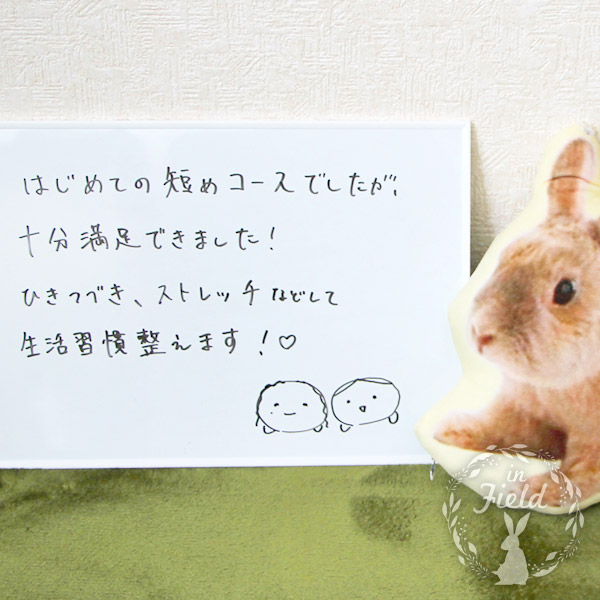 はじめての短めコースでしたが、
十分満足できました!
ひきつづき、ストレッチなどして
生活習慣整えます!♡
in
Field